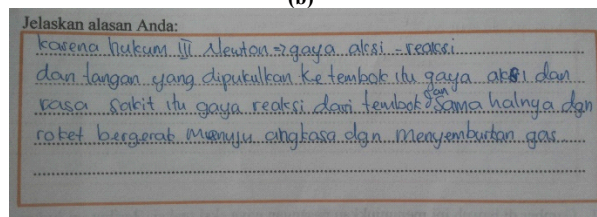 (b)
Jelaskan alasan Anda:
karena hukum III Newton → gaya aksi - reaksi
dan tangan yang dipukulkan ke tembok itu gaya aksi dan
rasa sakit itu gaya reaksi dari tembok dan sama halnya dgn
roket bergerak menuju angkasa dgn menyemburkan gas